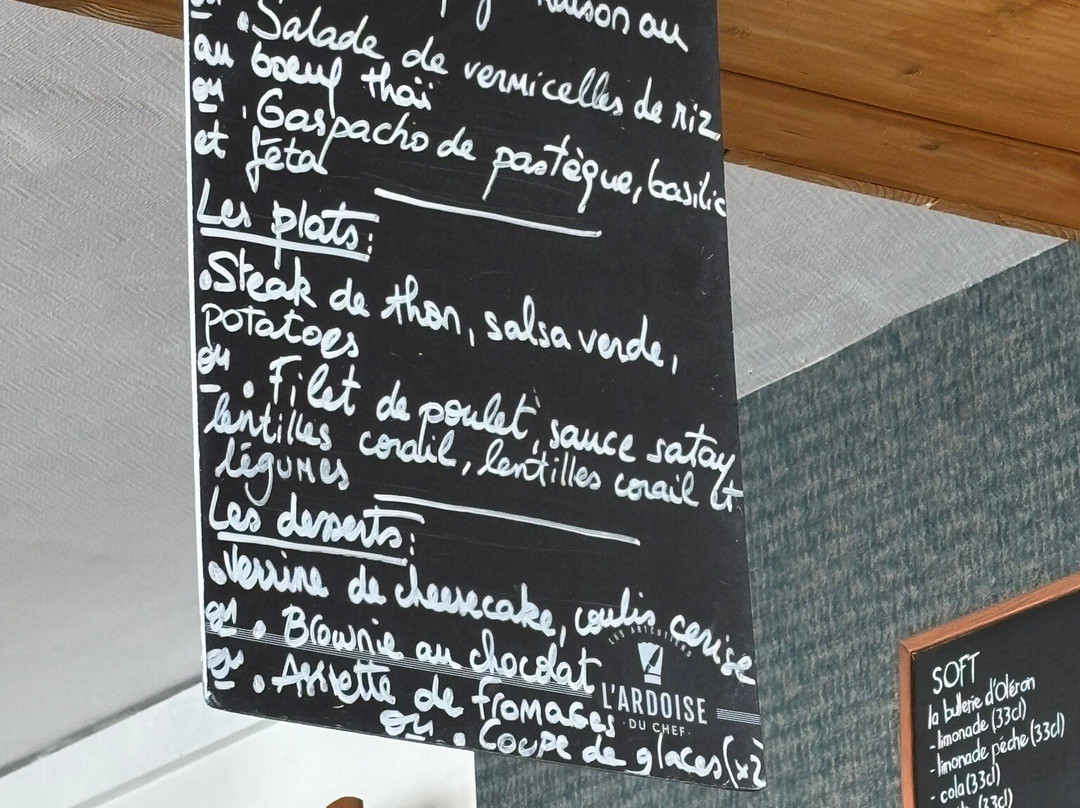 maison au
ou . Salade de vermicelles de riz
au boeuf thaï
ou . Gaspacho de pastèque, basilic
et féta
Les plats:
.Steak de thon, salsa verde,
potatoes
ou . Filet de poulet, sauce satay
lentilles corail, lentilles corail et
légumes
Les desserts:
.Verrine de cheesecake, coulis cerise
ou . Brownie au chocolat
ou . Assiette de fromages
ou . Coupe de glaces (x2
L'ARDOISE
DU CHEF
SOFT
la bullerie d'Oléron
- limonade (33cl)
- limonade pêche (33cl)
- cola (33cl)
(33cl)